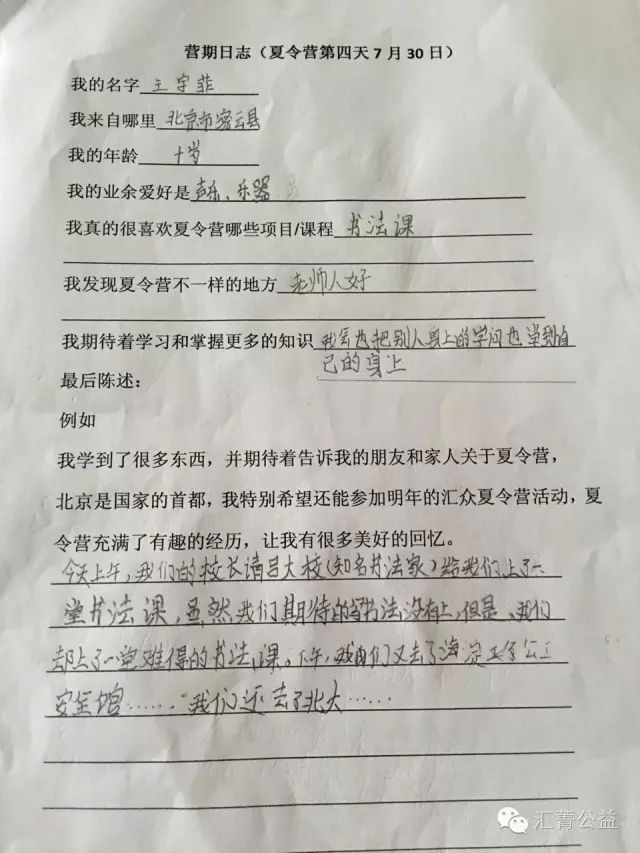 营期日志（夏令营第四天7月30日）
我的名字 王宇菲
我来自哪里 北京市密云县
我的年龄 十岁
我的业余爱好是 声乐、乐器
我真的很喜欢夏令营哪些项目/课程 书法课
我发现夏令营不一样的地方 老师人好
我期待着学习和掌握更多的知识 我会把别人身上的学问也学到自
己的身上
最后陈述：
例如
我学到了很多东西，并期待着告诉我的朋友和家人关于夏令营，
北京是国家的首都，我特别希望还能参加明年的汇众夏令营活动，夏
令营充满了有趣的经历，让我有很多美好的回忆。
今天上午，我们的校长请吕大校（知名书法家）给我们上了一
堂书法课，虽然我们期待的写书法没有上，但是，我们
却上了一堂难得的书法课。下午，我们又去了海淀公
安全馆……我们还去了北大……
汇菁公益